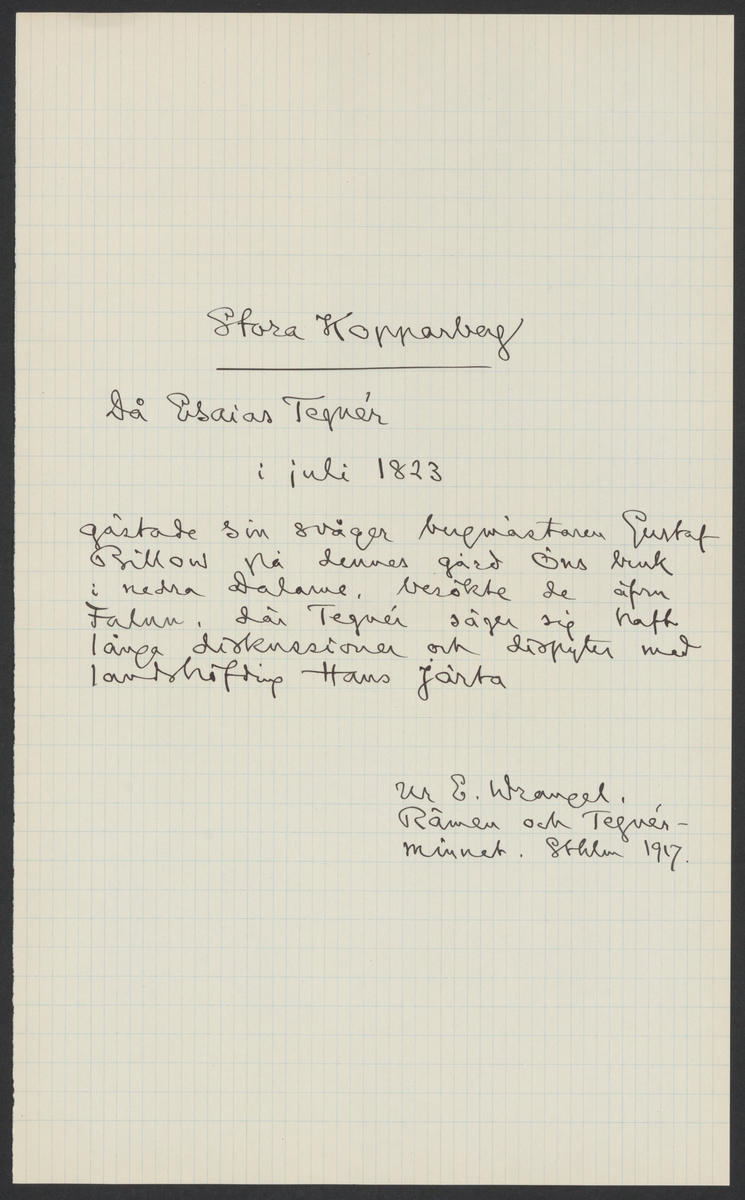 Stora Kopparberg
Då Esaias Tegnér
i juli 1823
gästade sin svåger bergmästaren Gustaf
Billow på dennes gård Öns bruk
i nedra Dalarne, besökte de äfven
Falun, där Tegnér säger sig haft
långa diskussioner och dispyter med
landshöfding Hans Järta
Ur E. Wrangel.
Rämen och Tegnér-
minnet. Sthlm 1917.